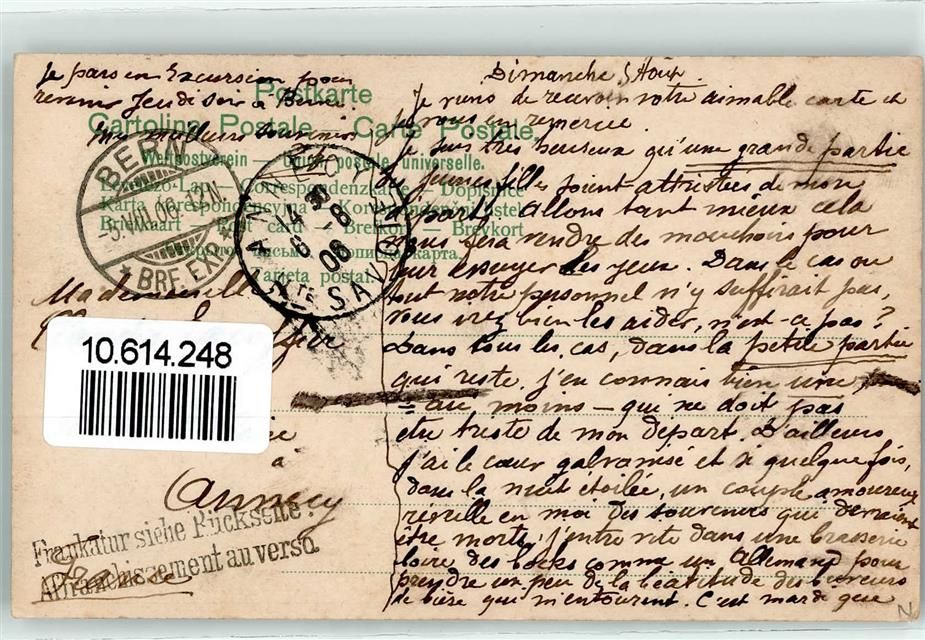 Je pars en Excursion pour
revenir Jeudi soir à Berne.
Mes meilleurs souvenirs
Postkarte
Cartolina Postale — Carte Postale.
Weltpostverein — Union postale universelle.
Levelezo-Lap — Correspondenzkarte — Dopisnice
Karta korespondencyjna — Korespondenční lístek
Brevkaart — Post card — Brefkort — Brevkort
Tarjeta postal.
BERN
-5.VIII.06.-12N.
* BRF. EXP. *
ANNECY
14 30
6 -8
06
HTE SAVOIE
Mademoiselle
10.614.248
à
Annecy
France
Frankatur siehe Rückseite
Affranchissement au verso
Dimanche 5 Août.
Je viens de recevoir votre aimable carte et
je vous en remercie.
Je suis très heureux qu'une grande partie
de jeunes filles soient attristées de mon
départ. Allons tant mieux cela
vous fera vendre des mouchoirs pour
leur essuyer les yeux. Dans le cas ou
tout votre personnel n'y suffirait pas,
vous irez bien les aider, n'est-ce pas?
Dans tous les cas, dans la petite partie
qui reste, j'en connais bien une
— au moins — qui ne doit pas
être triste de mon départ. D'ailleurs
j'ai le cœur galvanisé et si quelque fois,
dans la nuit étoilée, un couple amoureux
réveille en moi des souvenirs qui devraient
être morts, j'entre vite dans une brasserie
boire des bocks comme un Allemand pour
prendre un peu de la béatitude des buveurs
de bière qui m'entourent. C'est mardi que